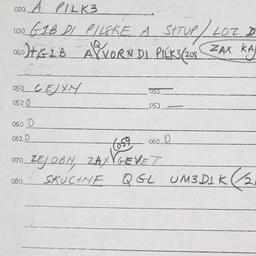 020 A PILK3
030 GIB DI PILSRE A SHTUP/LOZ D
040 )+GIB A VORN DI PILK3(208 ZAX KA
050 CEJXM 051
052 0 053 —
060 D
061 0 (059 062 0
070 ZEJOBM, ZAX GEVET
080 SKUCHNE QGL UM3D1K(/2